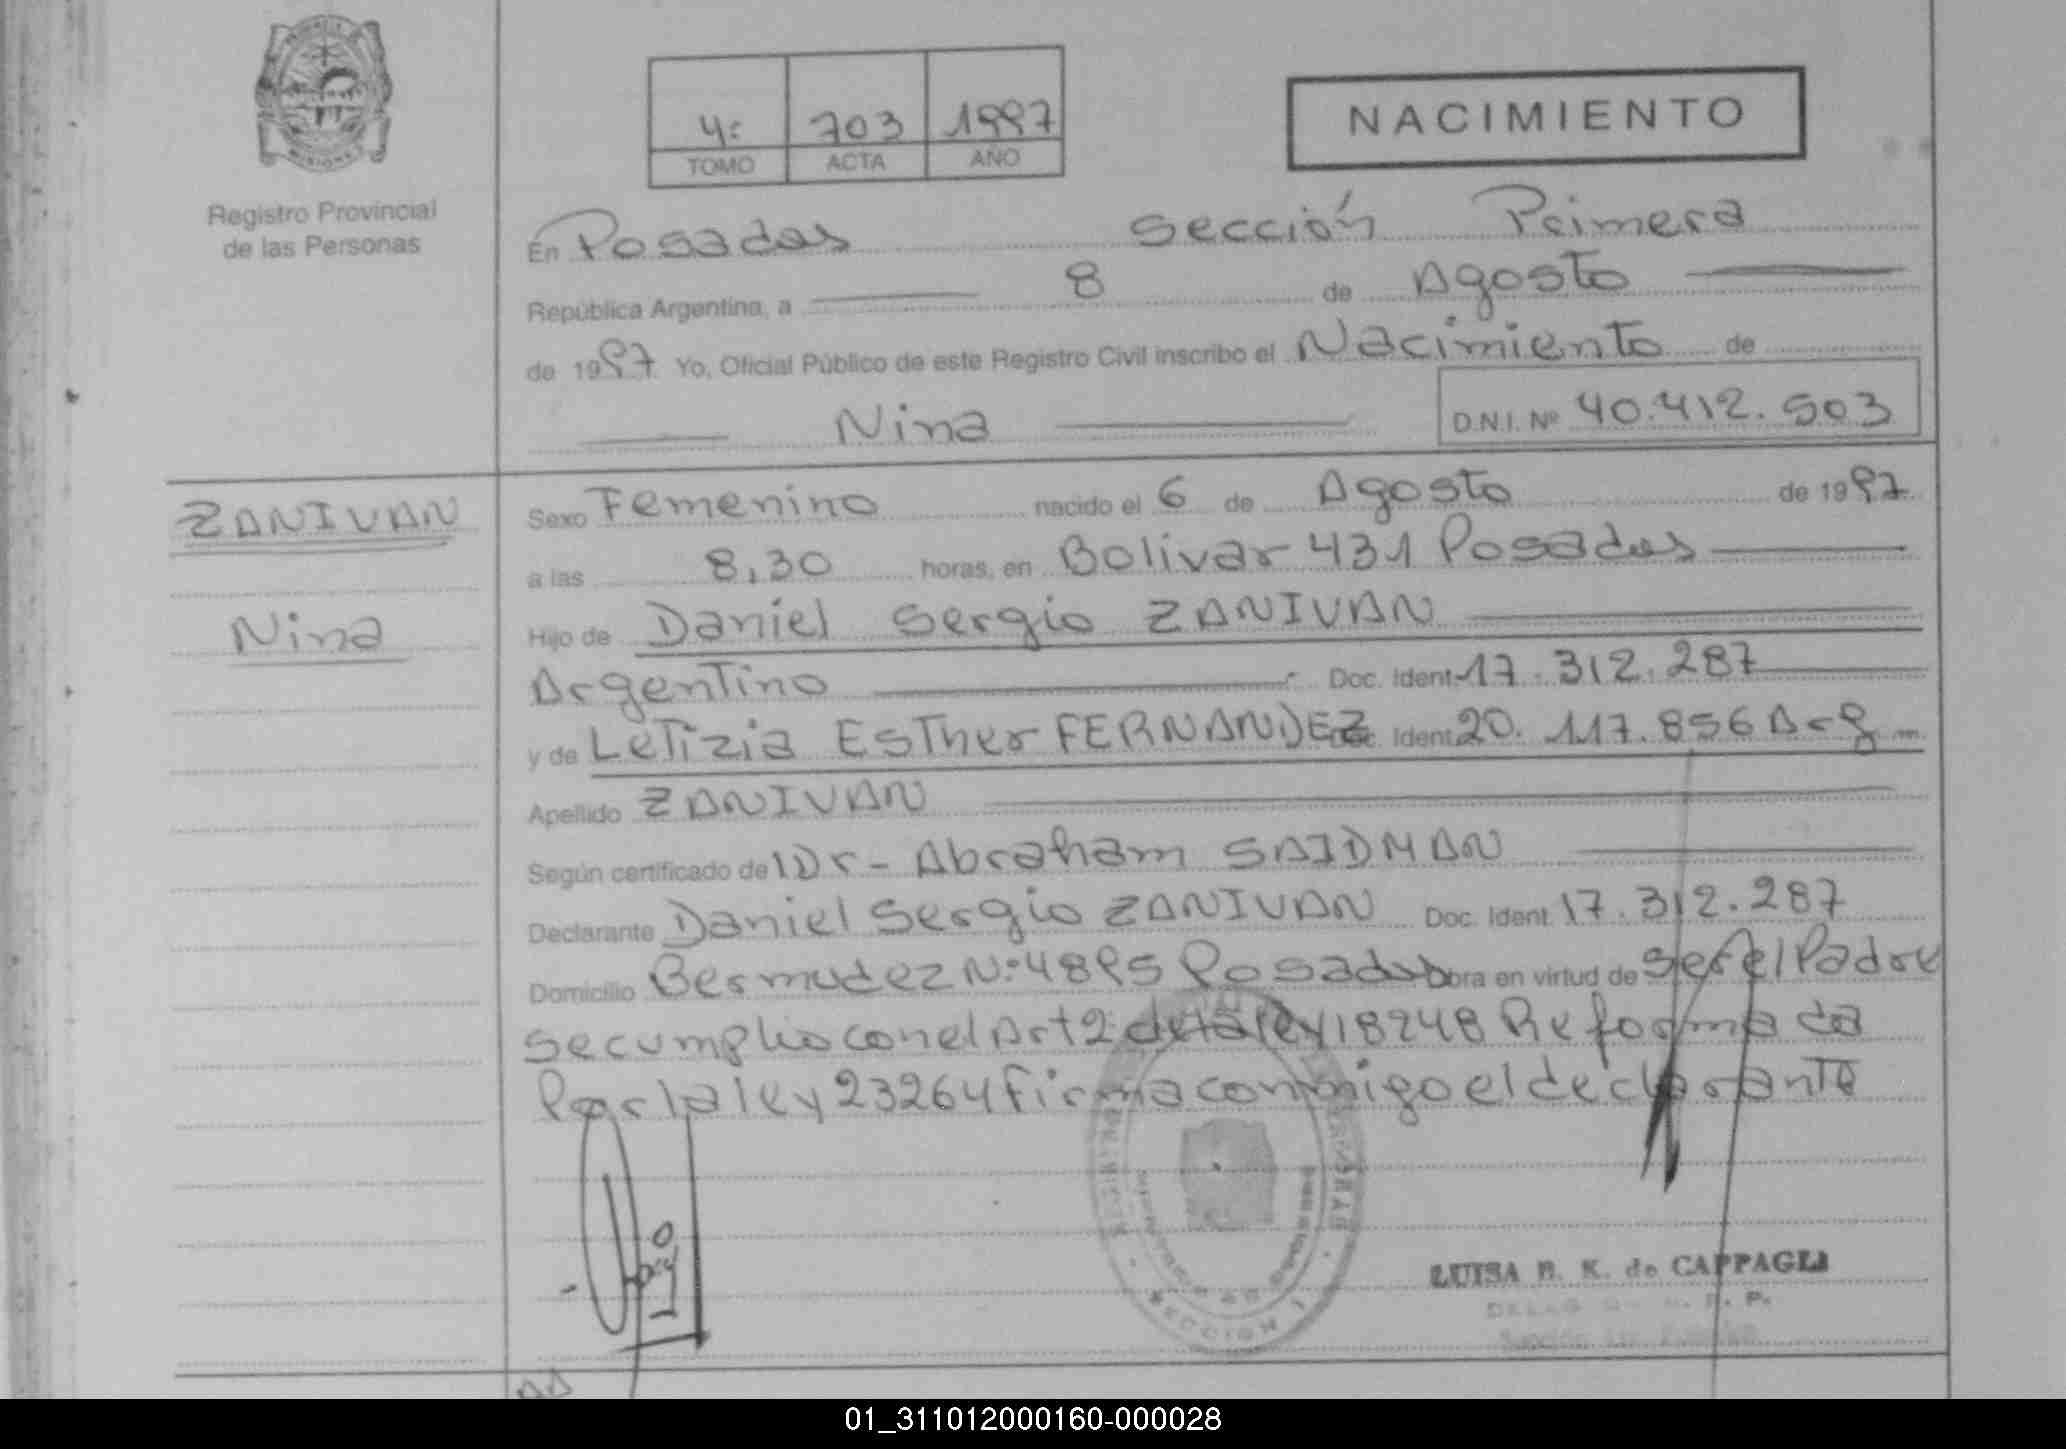 PROVINCIA DE MISIONES
Registro Provincial
de las Personas
4º 703 1997
TOMO ACTA AÑO
NACIMIENTO
En Posadas Sección Primera
República Argentina, a 8 de Agosto
de 1997 Yo, Oficial Público de este Registro Civil inscribo el Nacimiento de
Nina D.N.I. Nº 40.412.503
ZANIVAN
Nina
Sexo Femenino nacido el 6 de Agosto de 1997
a las 8,30 horas, en Bolivar 431 Posadas
Hijo de Daniel Sergio ZANIVAN
Argentino Doc. Ident. 17.312.287
y de Letizia Esther FERNANDEZ Doc. Ident. 20.117.856 Arg
Apellido ZANIVAN
Según certificado de Dr- Abraham SAIDMAN
Declarante Daniel Sergio ZANIVAN Doc. Ident. 17.312.287
Domicilio Bermudez Nº 4895 Posadas obra en virtud de ser el Padre
se cumplio con el Art 2 de la ley 18248 Reformada
Por la ley 23264 firma conmigo el declarante
SECCION 1
LUISA B. K. de CAPPAGLI
01_311012000160-000028